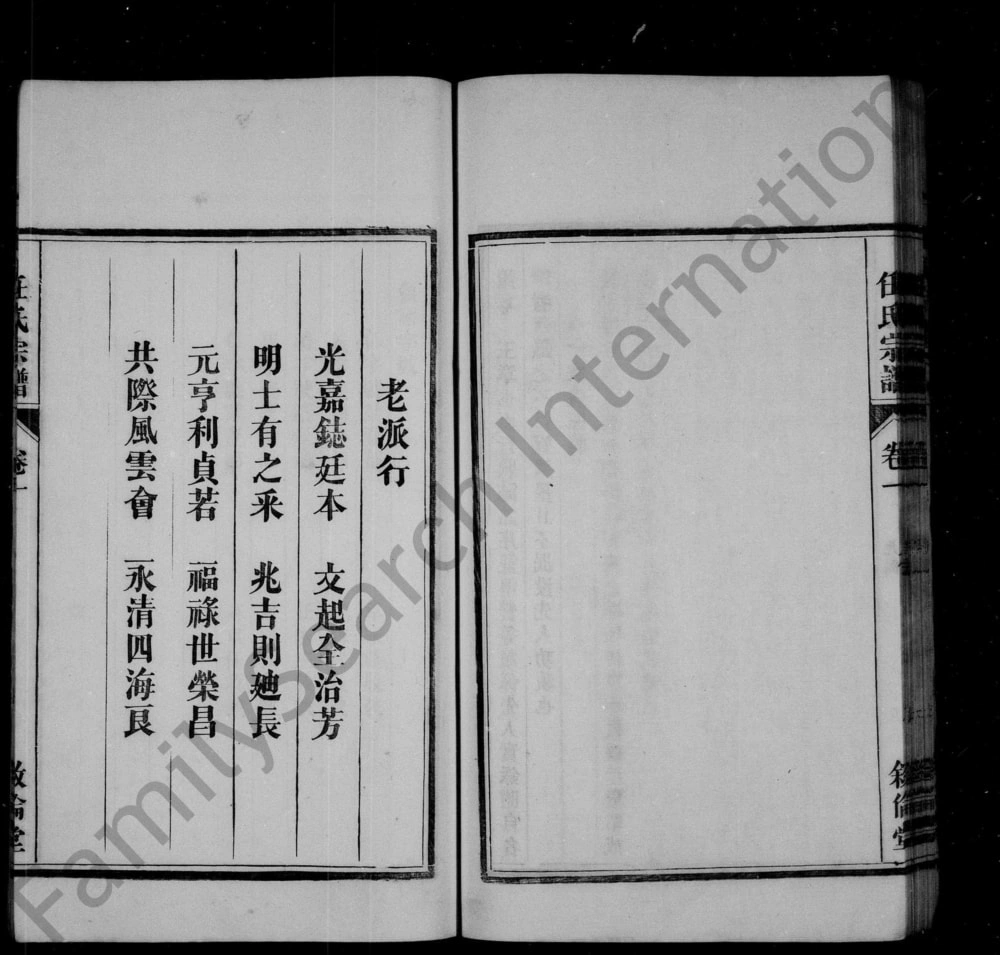 任氏宗譜
卷一
敘倫堂
老派行
光嘉鋕廷本 文起全治芳
明士有之釆 兆吉則廸長
元亨利貞若 福祿世榮昌
共際風雲會 永清四海良
任氏宗譜
卷一
敘倫堂
FamilySearch International